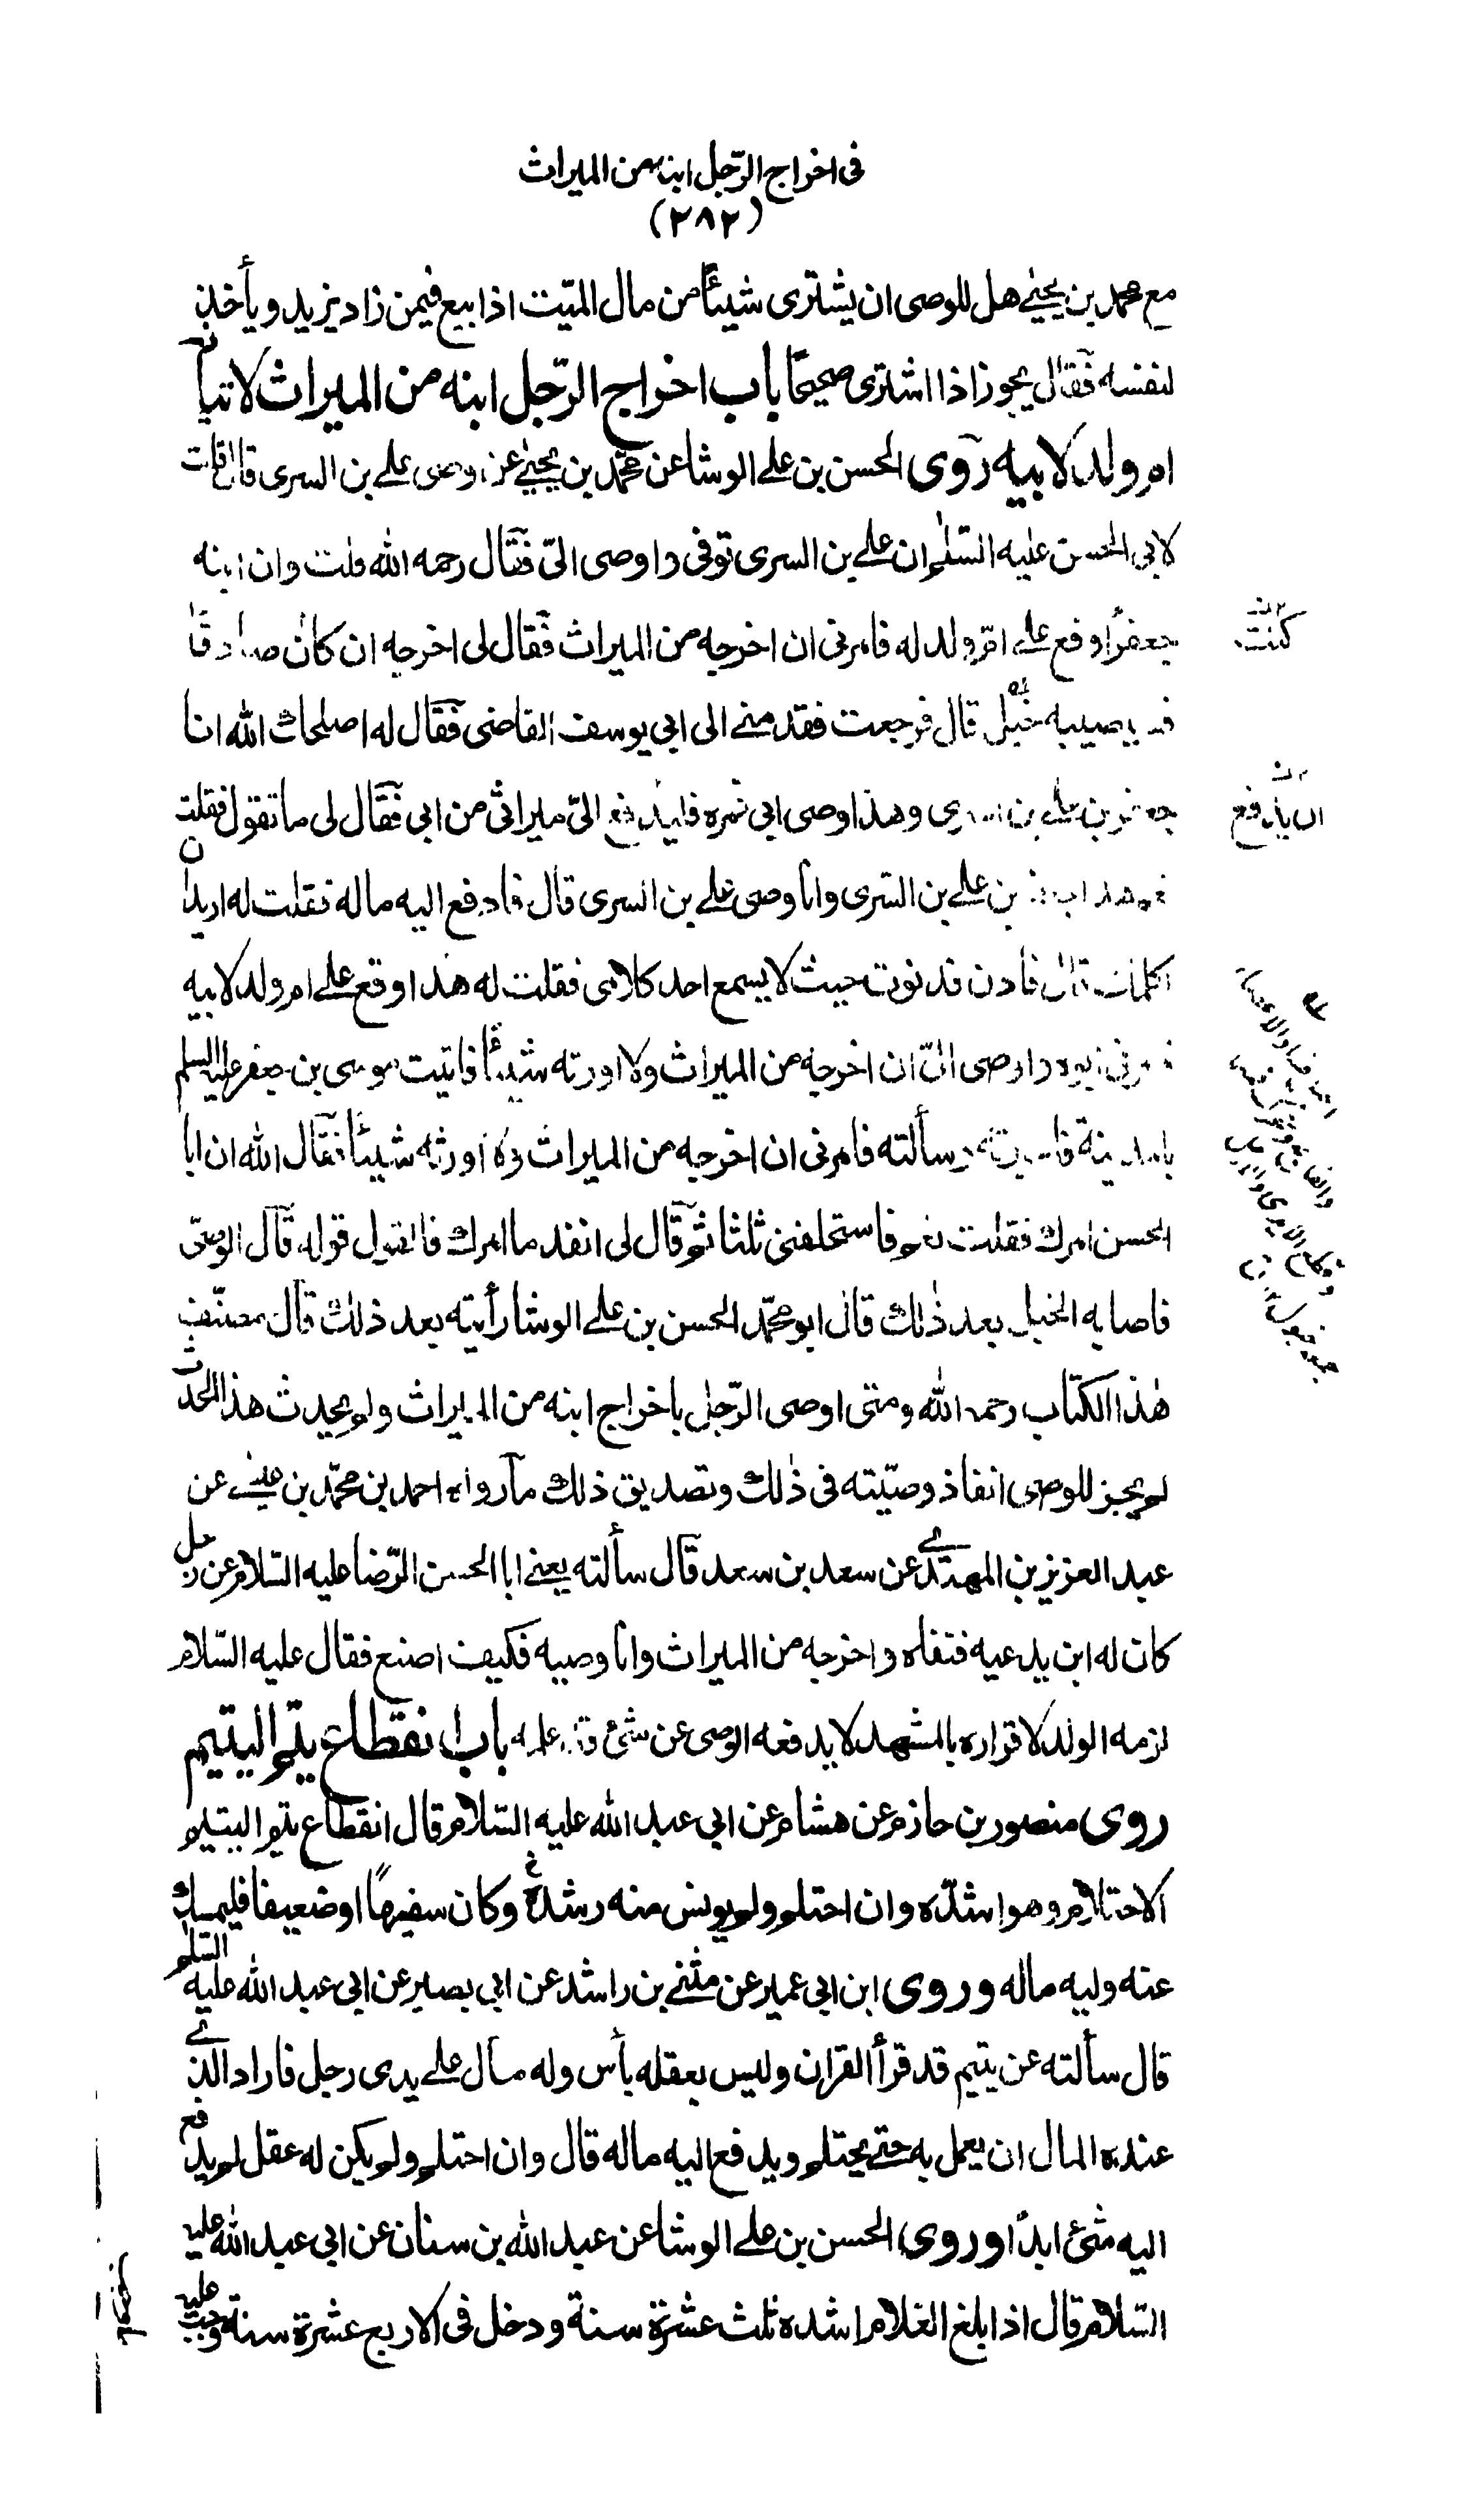 فى اخراج الرّجل ابنه من الميراث
(٢٨٢)
مع محمد بن يحيى هل للوصى ان يشترى شيئاً من مال الميّت اذا بيع فيمن زاد يزيد و يأخذ
لنفسه فقال يجوز اذا اشترى صحيحاً باب اخراج الرّجل ابنه من الميراث لاتيانه
ام ولد لابيه روى الحسن بن على الوشا عن محمّد بن يحيى عن وصى على بن السرى قال قلت
لابى الحسن عليه السّلم ان على بن السرى توفى واوصى الىّ فقال رحمه الله قلت وان ابنه
جعفراً وقع على امّ ولد له فامرنى ان اخرجه من الميراث فقال لى اخرجه ان كان صادقاً
فسيصيبه خبل قال فرجعت فقدمنى الى ابى يوسف القاضى فقال له اصلحك الله انا
جعفر بن على بن السرى وهذا وصى ابى فمره فليدفع الىّ ميراثى من ابى فقال لى ما تقول فقلت
نعم هذا جعفر بن على بن السرى وانا وصى على بن السرى قال فادفع اليه ماله فقلت له اريد ان
اكلمك قال فادن فدنوت حيث لا يسمع احد كلامى فقلت له هذا وقع على ام ولد لابيه
فامرنى ابوه واوصى الىّ ان اخرجه من الميراث ولا اورثه شيئاً فاتيت موسى بن جعفر عليه السلم
بالمدينة فاخبرته وسألته فامرنى ان اخرجه من الميراث ولا اورثه شيئاً فقال الله ان ابا
الحسن امرك فقلت نعم فاستحلفنى ثلثا ثم قال لى انفذ ما امرك فالقول قوله قال الوصىّ
فاصابه الخبل بعد ذلك قال ابو محمّد الحسن بن على الوشا رأيته بعد ذلك قال مصنّف
هذا الكتاب رحمه الله ومتى اوصى الرّجل باخراج ابنه من الميراث ولم يحدث هذا الحدث
لم يجز للوصى انفاذ وصيّته فى ذلك وتصديق ذلك ما رواه احمد بن محمّد بن عيسى عن
عبد العزيز بن المهتدى عن سعد بن سعد قال سألته يعنى ابا الحسن الرّضا عليه السّلام عن رجل
كان له ابن يدعيه فنفاه واخرجه من الميراث وانا وصيه فكيف اصنع فقال عليه السّلام
لزمه الولد لاقراره بالمشهد لا يدفعه الوصى عن شئ قد علمه باب انقطاع يتم اليتيم
روى منصور بن حازم عن هشام عن ابى عبد الله عليه السّلام قال انقطاع يتم اليتيم
الاحتلام وهو اشدّه وان احتلم ولم يونس منه رشده وكان سفيهاً اوضعيفا فليمسك
عنه وليه ماله وروى ابن ابى عمير عن مثنى بن راشد عن ابى بصير عن ابى عبد الله عليه السّلم
قال سألته عن يتيم قد قرأ القران وليس بعقله بأس وله مال على يدى رجل فاراد الذى
عنده المال ان يعمل به حتى يحتلم ويدفع اليه ماله قال وان احتلم ولم يكن له عقل لم يدفع
اليه شئ ابدًا وروى الحسن بن على الوشا عن عبد الله بن سنان عن ابى عبد الله عليه
السّلام قال اذا بلغ الغلام اشده ثلث عشرة سنة ودخل فى الاربع عشرة سنة وجب عليه
كنت
ان يدفع